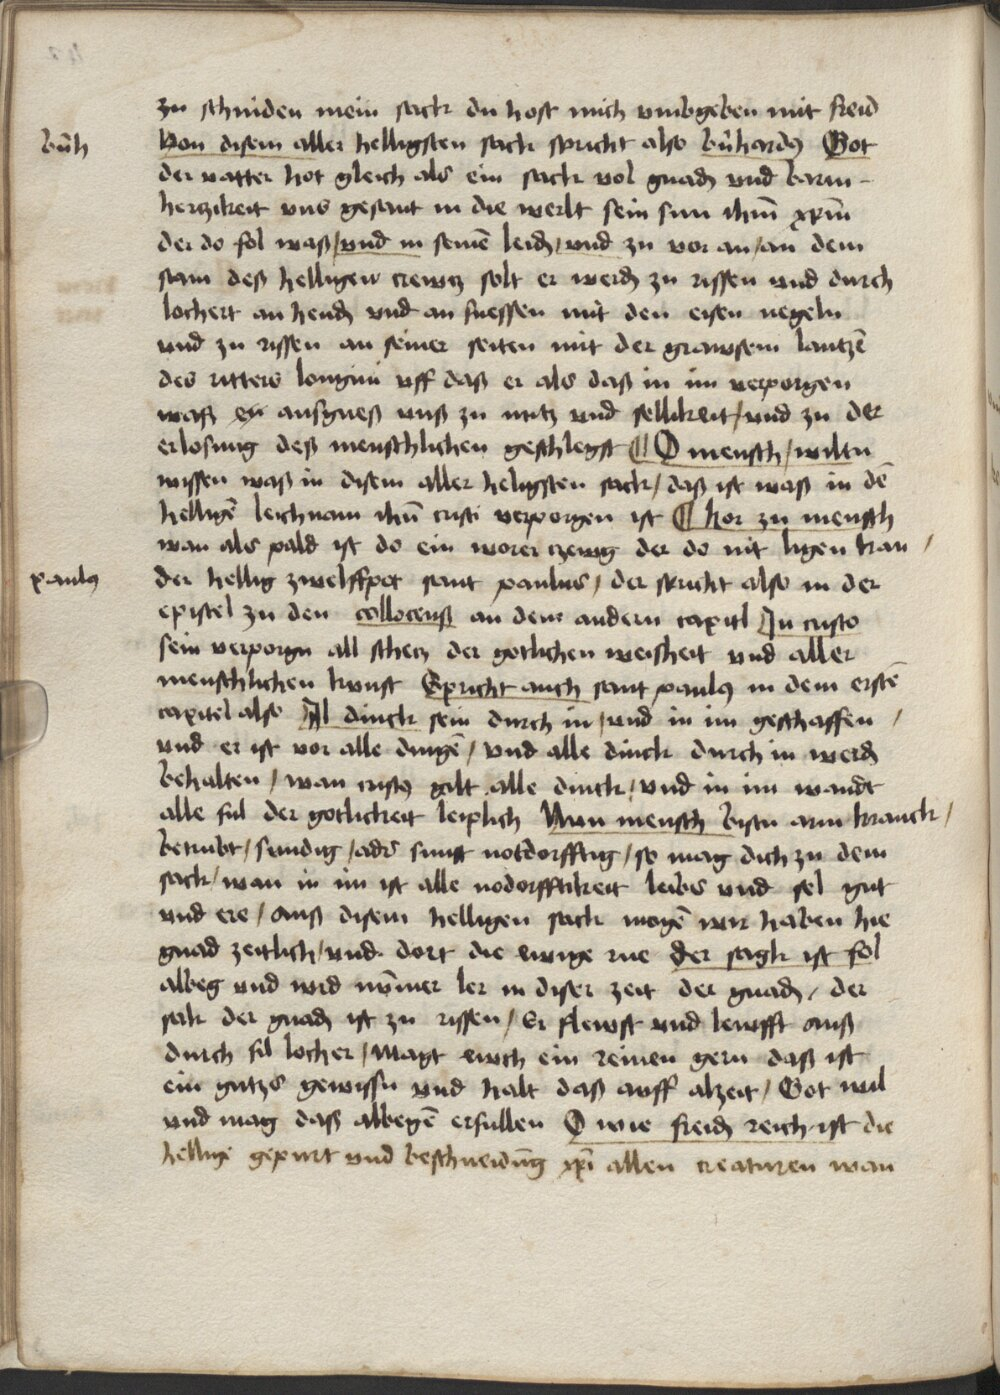 zu schniden mein sack du host mich vmbgeben mit freid
bn̄h
Von disem aller helligsten sack spricht also bn̄hardꝯ Got
der vatter hot gleich als ein sack vol gnadn vnd barm-
herczikeit vns gesant in die werlt sein sun ihm̄ xpm̄
der do fol waß / vnd in seinē leidn / vnd zu vor an / an dem
stam deß helligen crewtz solt er werdn zu rissen vnd durch
lochert an hendn vnd an fuessen mit den eisen negeln
vnd zu rissen an seiner seiten mit der grawsem lantzē
des ritters longini vff daß er als daß in im verporgen
waß auſgueß vnß zu nutz vnd sellikeit / vnd zu der
erlosung deß menschlichen geschlegst ¶ O mensch / wiltu
wissen waß in disem aller heligsten sack / daß ist waß in dē
helligē leichnam ihū cristi verporgen ist ¶ hor zu mensch
wan als pald ist do ein worer czewg der do nit ligen kan /
paulꝯ
der hellig zwelffpot sant paulus / der spricht also in der
epistel zu den collocenß an dem andern capitl In cristo
sein verporgn all schetz der gotlichen weisheit vnd aller
menschlichen kunst Spricht auch sant paulꝯ in dem erstē
capitel also Al dinck sein durch in / vnd in im geschaffen /
vnd er ist vor alle dingē / vnd alle dinck durch in werdn
behalten / wan cristꝯ gilt alle dinck / vnd in im wandt
alle ful der gotlickeit leiplich Nun mensch bistu arm kranck /
betrubt / sundig / ads sunst notdorfftig / so mag dich zu dem
sack / wan in im ist alle nodorfftikeit leibs vnd sel gut
vnd ere / auß disem helligen sack mogē wir haben hie
gnad zeitlich / vnd dort die ewige rue der sagk ist fol
albeg vnd wird nym̄er ler in diser zeit der gnadn / der
sak der gnadn ist zu rissen / Er flewst vnd lewfft auß
durch fil locher / Magt ewch ein reinen gern daß ist
ein gutzs gewissn vnd halt daß auff alzeit / Got wil
vnd mag daß albegē erfullen O wie freidn reich ist die
hellige gepurt vnd beschneidūg xp̄i allen creaturen wan